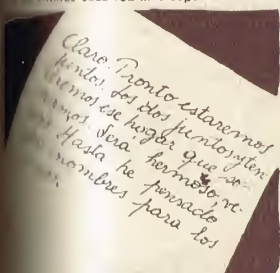 Claro. Pronto estaremos
juntos. Los dos juntos, y ten
dremos ese hogar que so
mos. Será hermoso, ve
Hasta he pensado
nombres para los